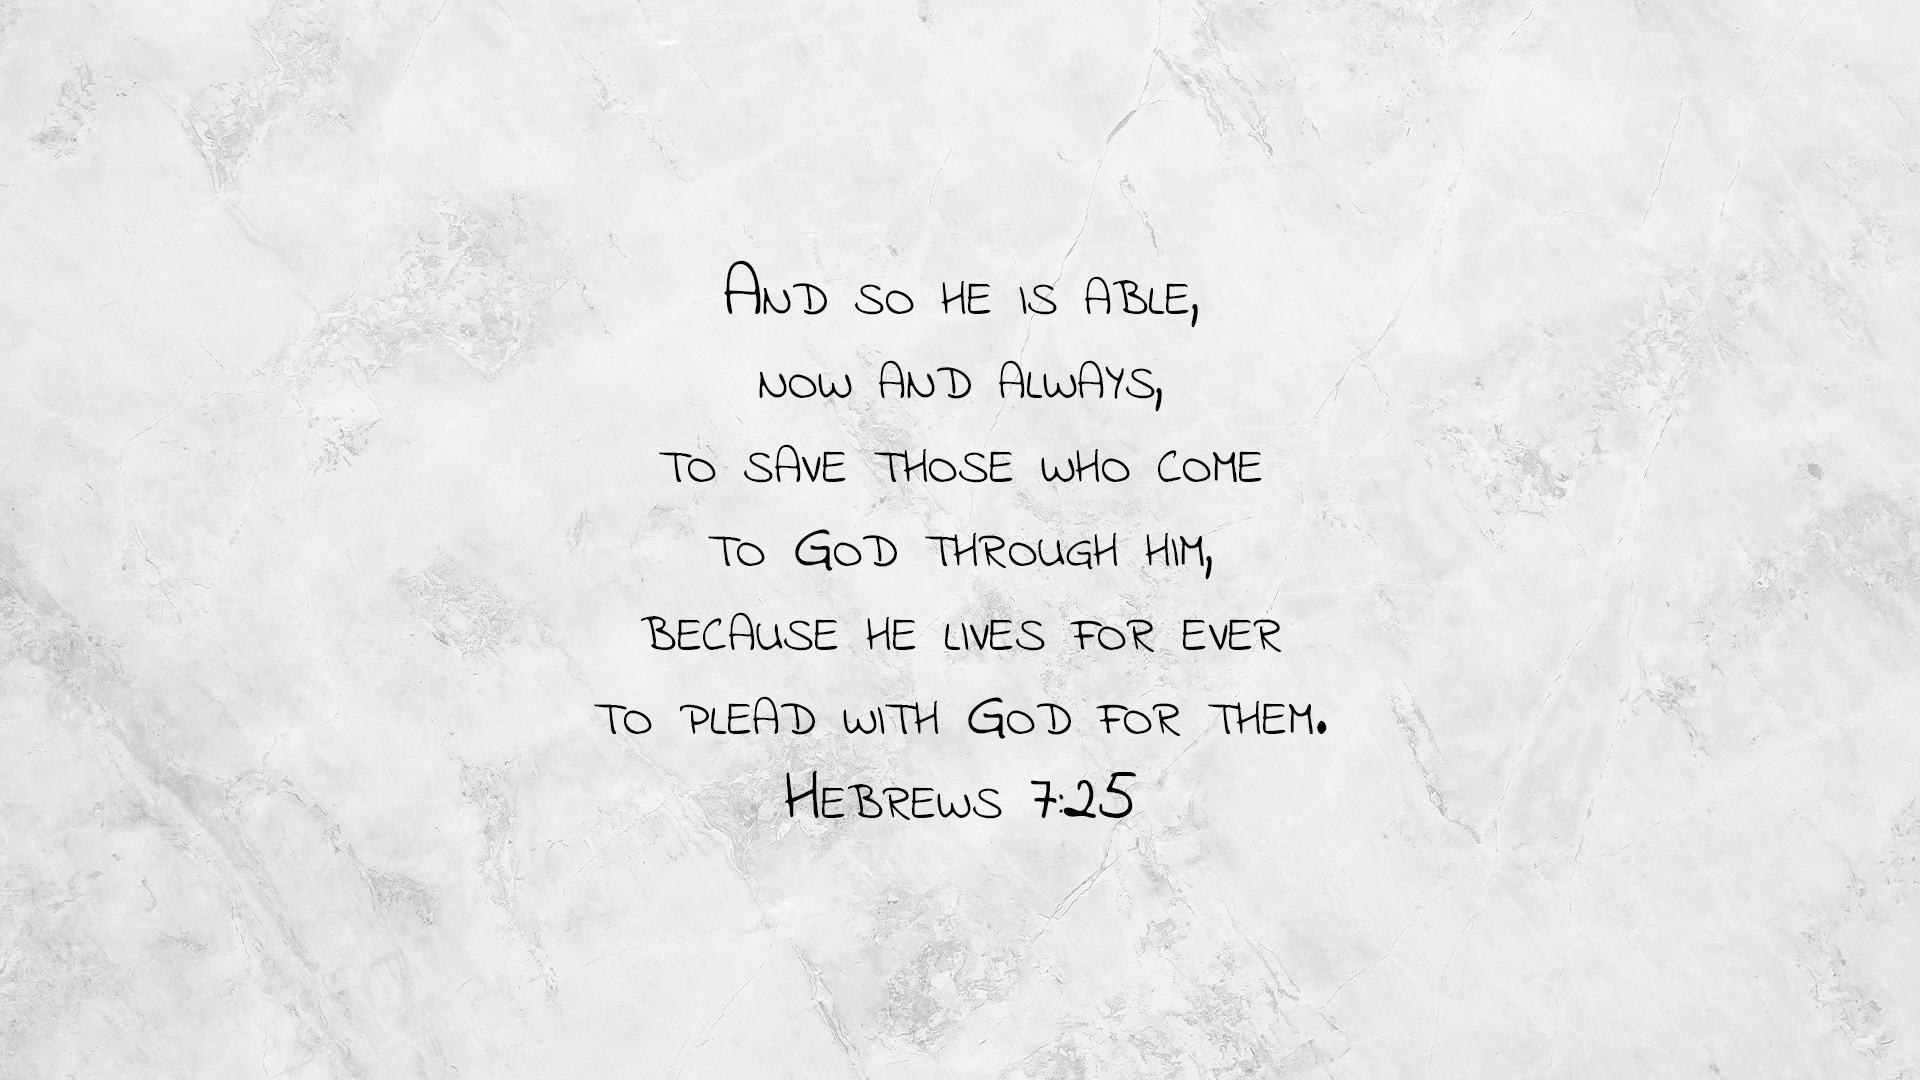 And so he is able,
now and always,
to save those who come
to God through him,
because he lives for ever
to plead with God for them.
Hebrews 7:25